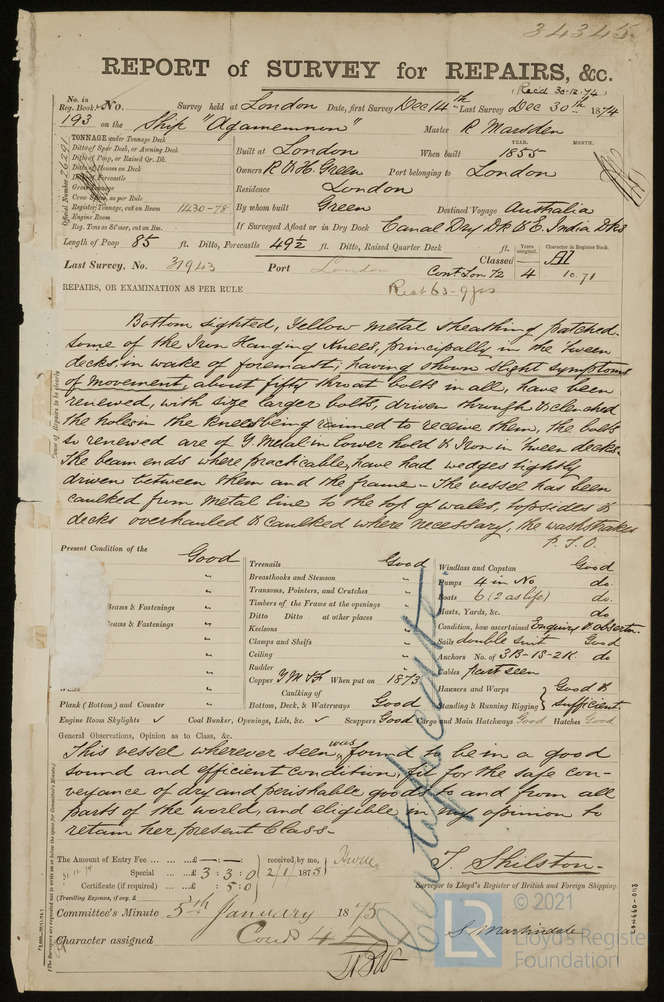 34345
REPORT of SURVEY for REPAIRS, &c.
(Rec'd 30.12.74)
No. in Reg. Book. No. Survey held at London Date, first Survey Dec 14th Last Survey Dec 30th 1874
193 on the Ship "Agamemnon" Master R Marsden
TONNAGE under Tonnage Deck
Ditto of Spar Deck, or Awning Deck
Ditto of Poop, or Raised Qr. Dk.
Ditto Houses on Deck
Ditto Forecastle
Gross Tonnage
Crew Space, as per Rule
Register Tonnage, cut on Beam 1430-78
Engine Room
Reg. Tons as St'mer, cut on Bm.
Official Number 26291
YEAR. MONTH.
Built at London When built 1855
Owners R & H. Green Port belonging to London
Residence London
By whom built Green Destined Voyage Australia
If Surveyed Afloat or in Dry Dock Canal Dry Dk & E. India Dks
Length of Poop 85 ft. Ditto, Forecastle 49½ ft. Ditto, Raised Quarter Deck ft.
Years assigned. Character in Register Book.
Last Survey, No. 31943 Port London Classed A1
Cont Lon 72 4 10.71
REPAIRS, OR EXAMINATION AS PER RULE Rest 63-9yrs
Bottom sighted, Yellow Metal Sheathing patched.
Some of the Iron Hanging Knees, principally in the 'tween
decks, in wake of foremast, having shewn slight symptoms
of movement, about fifty throat bolts in all, have been
renewed, with size larger bolts, driven through & clenched
the holes in the knees being rimmed to receive them, the bolts
so renewed are of Y. Metal in lower hold & Iron in 'tween decks.
The beam ends where practicable, have had wedges tightly
driven between them and the frame - The vessel has been
caulked from metal line to the top of wales, topsides &
decks overhauled & caulked where necessary, the washstrakes
P.T.O.
Present Condition of the Good
Beams & Fastenings "
Beams & Fastenings "
Plank (Bottom) and Counter "
Engine Room Skylights ✓ Coal Bunker, Openings, Lids, &c. ✓ Scuppers Good Cargo and Main Hatchways Good Hatches Good
Treenails Good
Breasthooks and Stemson "
Transoms, Pointers, and Crutches "
Timbers of the Frame at the openings "
Ditto Ditto at other places "
Keelsons "
Clamps and Shelfs "
Ceiling "
Rudder "
Copper When put on 1873
Caulking of
Bottom, Deck, & Waterways Good
Windlass and Capstan Good
Pumps 4 in No do.
Boats 6 (2 as life) do.
Masts, Yards, &c. do
Condition, how ascertained Enquiry & observn.
Sails double suit Good
Anchors No. of 3B-1S-2K. do
Cables part seen
Hawsers and Warps Good &
Standing & Running Rigging sufficient.
General Observations, Opinion as to Class, &c.
This vessel wherever seen, was found to be in a good
sound and efficient condition, fit for the safe con-
veyance of dry and perishable goods to and from all
parts of the world, and eligible in my opinion to
retain her present Class.
The Amount of Entry Fee ... £ — : — : received by me,
31.12.74 Special ... £ 3 : 3 : 0 2/1 1875
Certificate (if required) ... : 5 : 0
(Travelling Expenses, if any, £
T. Shilston
Surveyor to Lloyd's Register of British and Foreign Shipping.
Committee's Minute 5th January 1875
S. Martindale
Character assigned Contd 4
LON660-0113
© 2021
LR Lloyd's Register
Foundation